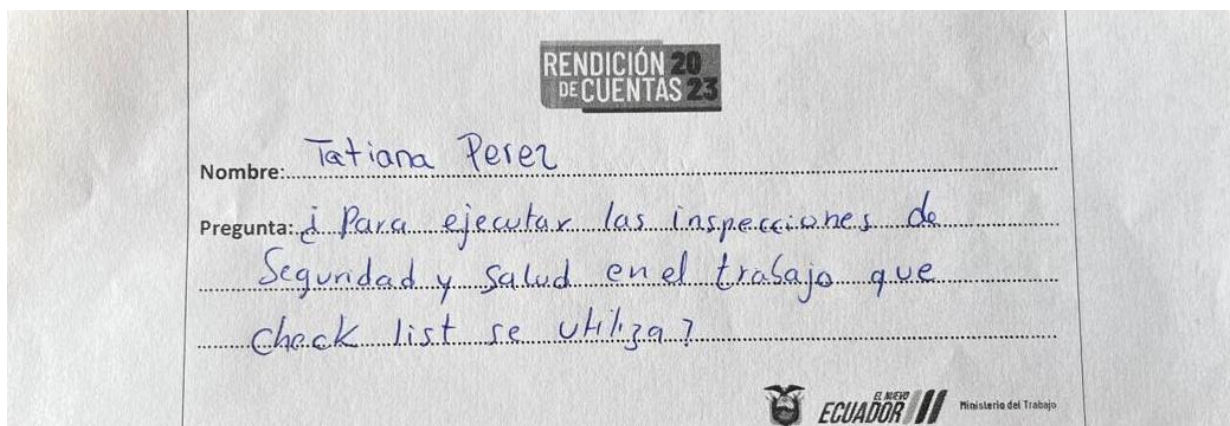 RENDICIÓN 20
DE CUENTAS 23
Nombre: Tatiana Perez
Pregunta: ¿Para ejecutar las inspecciones de
Seguridad y Salud en el trabajo que
check list se utiliza?
EL NUEVO
ECUADOR
Ministerio del Trabajo